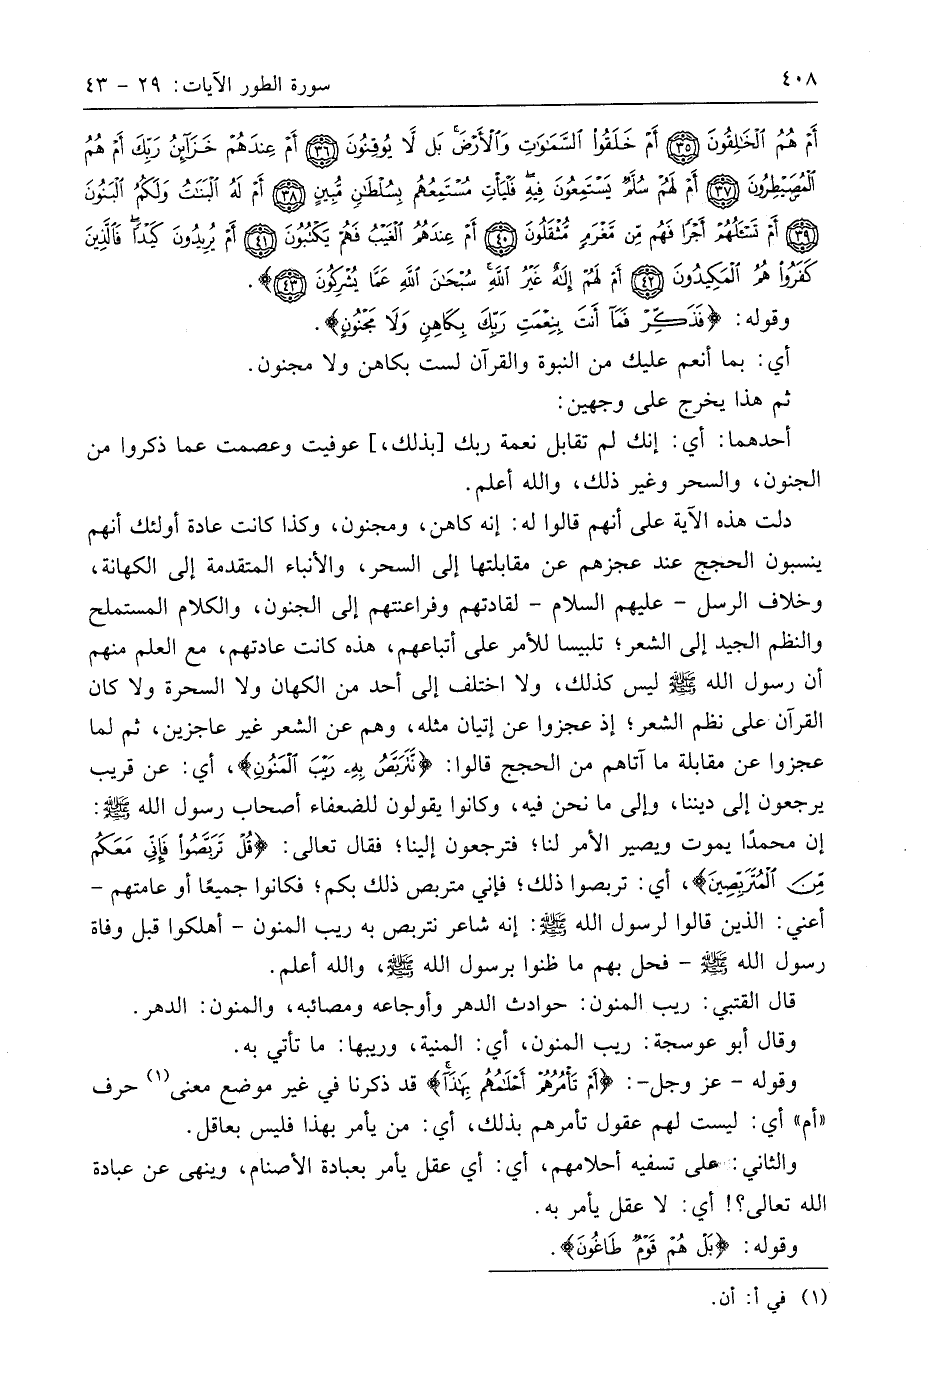 ٤٠٨
سورة الطور الآيات: ٢٩ - ٤٣
أَمْ هُمُ الْخَالِقُونَ ﴿٣٥﴾ أَمْ خَلَقُوا السَّمَاوَاتِ وَالْأَرْضَ بَل لَّا يُوقِنُونَ ﴿٣٦﴾ أَمْ عِندَهُمْ خَزَائِنُ رَبِّكَ أَمْ هُمُ
الْمُصَيْطِرُونَ ﴿٣٧﴾ أَمْ لَهُمْ سُلَّمٌ يَسْتَمِعُونَ فِيهِ فَلْيَأْتِ مُسْتَمِعُهُم بِسُلْطَانٍ مُّبِينٍ ﴿٣٨﴾ أَمْ لَهُ الْبَنَاتُ وَلَكُمُ الْبَنُونَ
﴿٣٩﴾ أَمْ تَسْأَلُهُمْ أَجْرًا فَهُم مِّن مَّغْرَمٍ مُّثْقَلُونَ ﴿٤٠﴾ أَمْ عِندَهُمُ الْغَيْبُ فَهُمْ يَكْتُبُونَ ﴿٤١﴾ أَمْ يُرِيدُونَ كَيْدًا فَالَّذِينَ
كَفَرُوا هُمُ الْمَكِيدُونَ ﴿٤٢﴾ أَمْ لَهُمْ إِلَهٌ غَيْرُ اللَّهِ سُبْحَانَ اللَّهِ عَمَّا يُشْرِكُونَ ﴿٤٣﴾﴾.
وقوله: ﴿فَذَكِّرْ فَمَا أَنتَ بِنِعْمَتِ رَبِّكَ بِكَاهِنٍ وَلَا مَجْنُونٍ﴾.
أي: بما أنعم عليك من النبوة والقرآن لست بكاهن ولا مجنون.
ثم هذا يخرج على وجهين:
أحدهما: أي: إنك لم تقابل نعمة ربك [بذلك،] عوفيت وعصمت عما ذكروا من
الجنون، والسحر وغير ذلك، والله أعلم.
دلت هذه الآية على أنهم قالوا له: إنه كاهن، ومجنون، وكذا كانت عادة أولئك أنهم
ينسبون الحجج عند عجزهم عن مقابلتها إلى السحر، والأنباء المتقدمة إلى الكهانة،
وخلاف الرسل - عليهم السلام - لقادتهم وفراعنتهم إلى الجنون، والكلام المستملح
والنظم الجيد إلى الشعر؛ تلبيسا للأمر على أتباعهم، هذه كانت عادتهم، مع العلم منهم
أن رسول الله ﷺ ليس كذلك، ولا اختلف إلى أحد من الكهان ولا السحرة ولا كان
القرآن على نظم الشعر؛ إذ عجزوا عن إتيان مثله، وهم عن الشعر غير عاجزين، ثم لما
عجزوا عن مقابلة ما آتاهم من الحجج قالوا: ﴿نَّتَرَبَّصُ بِهِ رَيْبَ الْمَنُونِ﴾، أي: عن قريب
يرجعون إلى ديننا، وإلى ما نحن فيه، وكانوا يقولون للضعفاء أصحاب رسول الله ﷺ:
إن محمدًا يموت ويصير الأمر لنا؛ فترجعون إلينا؛ فقال تعالى: ﴿قُلْ تَرَبَّصُوا فَإِنِّي مَعَكُم
مِّنَ الْمُتَرَبِّصِينَ﴾، أي: تربصوا ذلك؛ فإني متربص ذلك بكم؛ فكانوا جميعًا أو عامتهم -
أعني: الذين قالوا لرسول الله ﷺ: إنه شاعر نتربص به ريب المنون - أهلكوا قبل وفاة
رسول الله ﷺ - فحل بهم ما ظنوا برسول الله ﷺ، والله أعلم.
قال القتبي: ريب المنون: حوادث الدهر وأوجاعه ومصائبه، والمنون: الدهر.
وقال أبو عوسجة: ريب المنون، أي: المنية، وريبها: ما تأتي به.
وقوله - عز وجل-: ﴿أَمْ تَأْمُرُهُمْ أَحْلَامُهُم بِهَذَا﴾ قد ذكرنا في غير موضع معنى(١) حرف
«أم» أي: ليست لهم عقول تأمرهم بذلك، أي: من يأمر بهذا فليس بعاقل.
والثاني: على تسفيه أحلامهم، أي: أي عقل يأمر بعبادة الأصنام، وينهى عن عبادة
الله تعالى؟! أي: لا عقل يأمر به.
وقوله: ﴿بَلْ هُمْ قَوْمٌ طَاغُونَ﴾.
(١) في أ: أن.